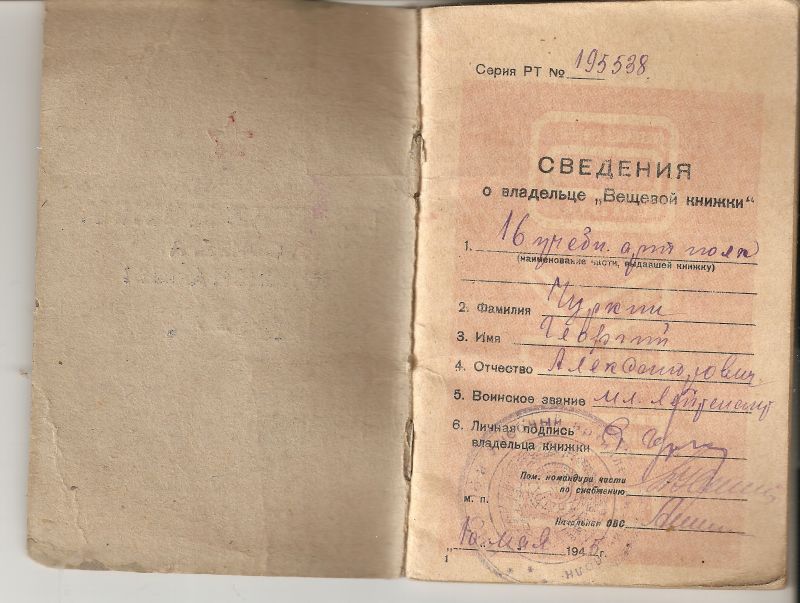 Серия РТ № 195538
СВЕДЕНИЯ
о владельце „Вещевой книжки“
1. 16 учебн. арт полк
(наименование части, выдавшей книжку)
2. Фамилия Чуркин
3. Имя Георгий
4. Отчество Александрович
5. Воинское звание мл. лейтенант
6. Личная подпись
владельца книжки
Пом. командира части
по снабжению
М. П.
Начальник ОВС
„ мая 194 г.
1